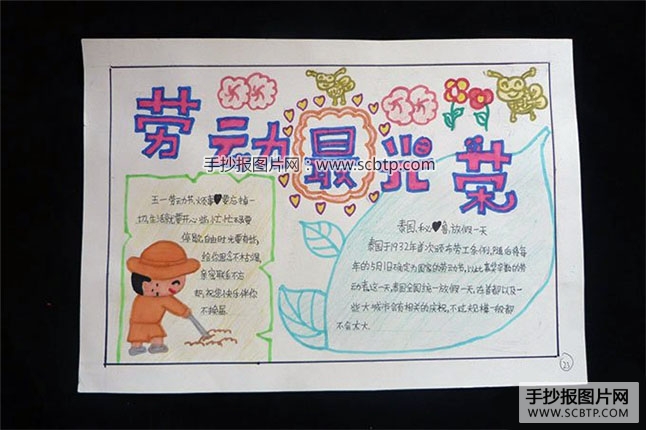 劳动最光荣
手抄报图片网：www.scbtp.com
五一劳动节，烦事♥要忘掉一
切，生活就要开心些，忙忙碌碌要
停歇，自由时光要有些，
给你思念不枯竭，
亲密联系不忘
却，祝您快乐伴你
不掉落
泰国、秘♥鲁，放假一天
泰国于1932年首次颁布劳工条例，随后将每
年的5月1日确定为国家的劳动节，以此嘉奖辛勤的劳
动者，这一天，泰国全国统一放假一天，在首都以及一
些大城市会有相关的庆祝，不过规模一般都
不会太大
23
手抄报图片网
WWW.SCBTP.COM